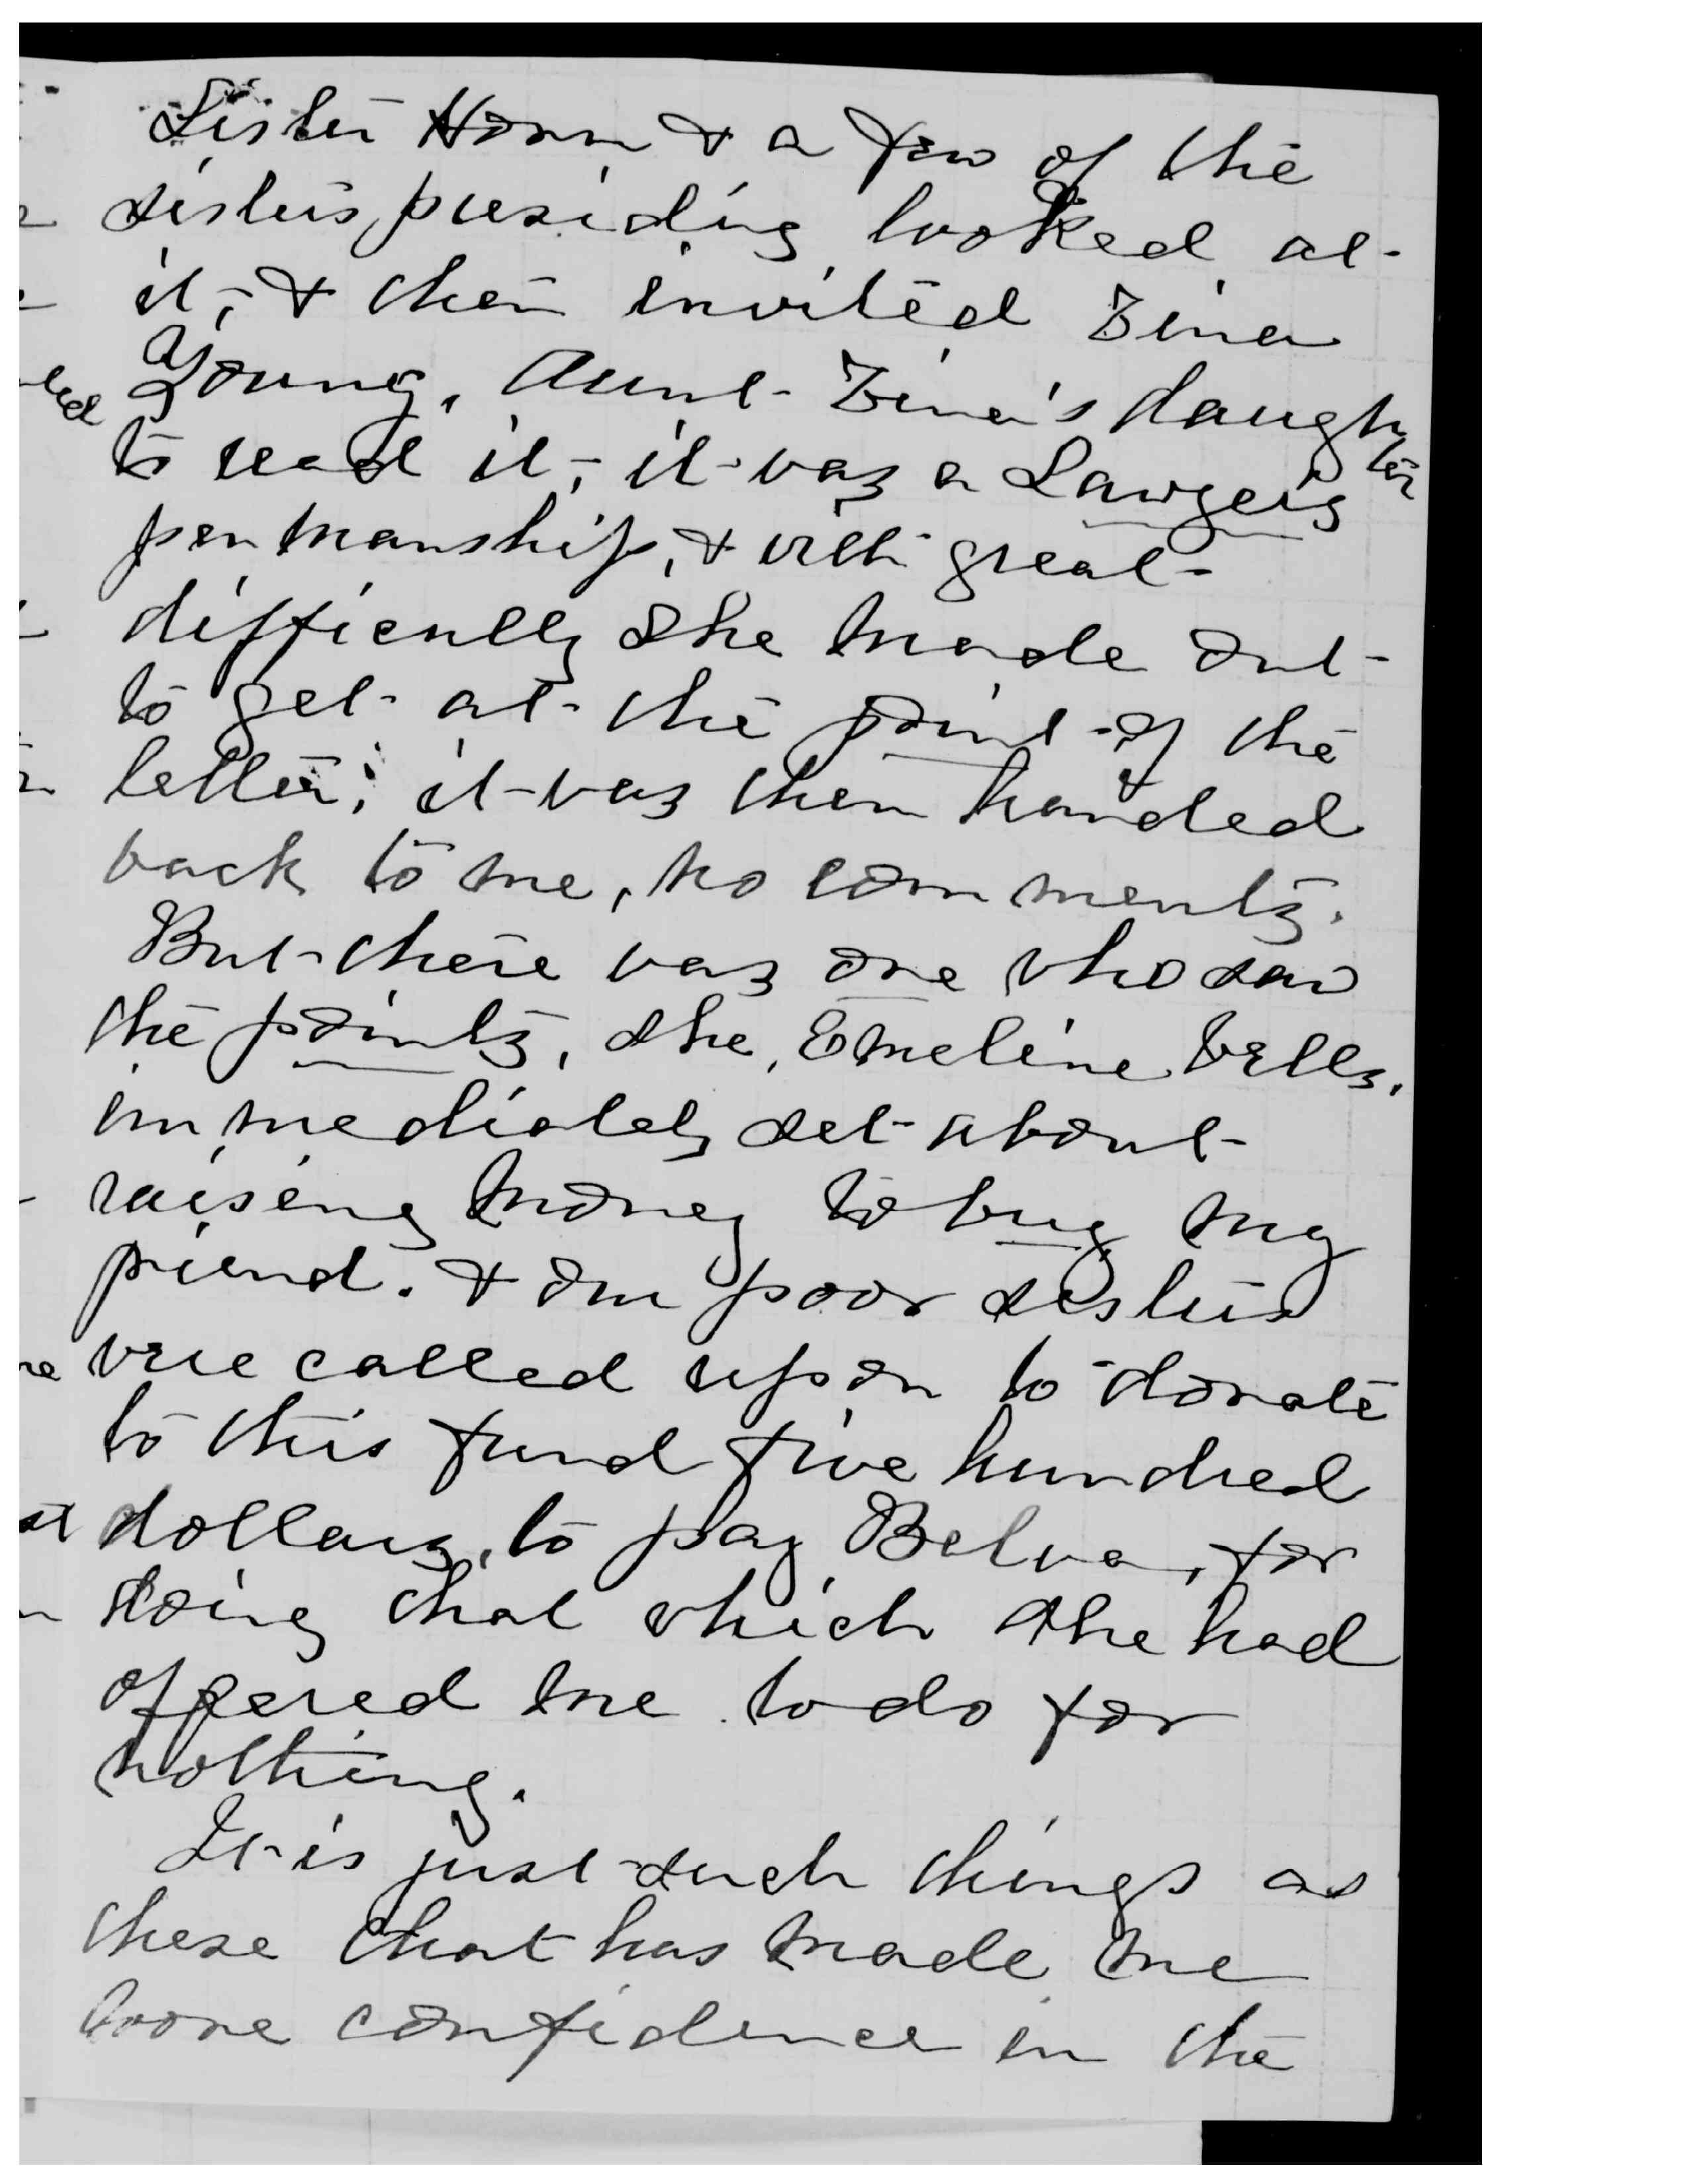 Sister Horn & a few of the
sisters presiding looked at
it, & then invited Zina
Young, Aunt Zina's daughter
to read it, it was a Lawyers
penmanship, & with great
difficulty she made out
to get at the point of the
letter; it was then handed
back to me, no comments.
But there was one who saw
the points, she, Emeline Wells,
immediately set about
raiseing money to buy my
friend. & our poor sisters
were called upon to donate
to this fund five hundred
dollars, to pay Belva, for
doing that which she had
offered me to do for
nothing.
It is just such things as
these that has made me
loose confidence in the